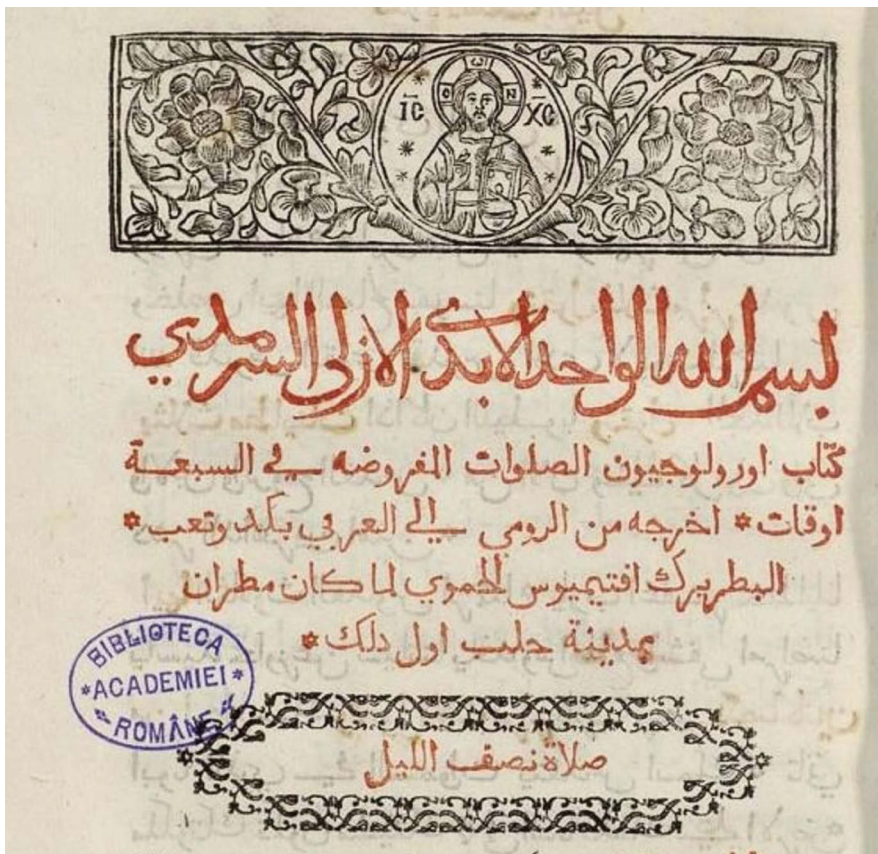 IC XC
Ο Ω Ν
بسم الله الواحد الابدي الازلي السرمدي
كتاب اورولوجيون الصلوات المفروضه في السبعة
اوقات * اخرجه من الرومي الى العربي بكد وتعب *
البطريرك افتيميوس الحموي لما كان مطران
بمدينة حلب اول دلك *
BIBLIOTECA
* ACADEMIEI *
ROMÂNE
صلاة نصف الليل